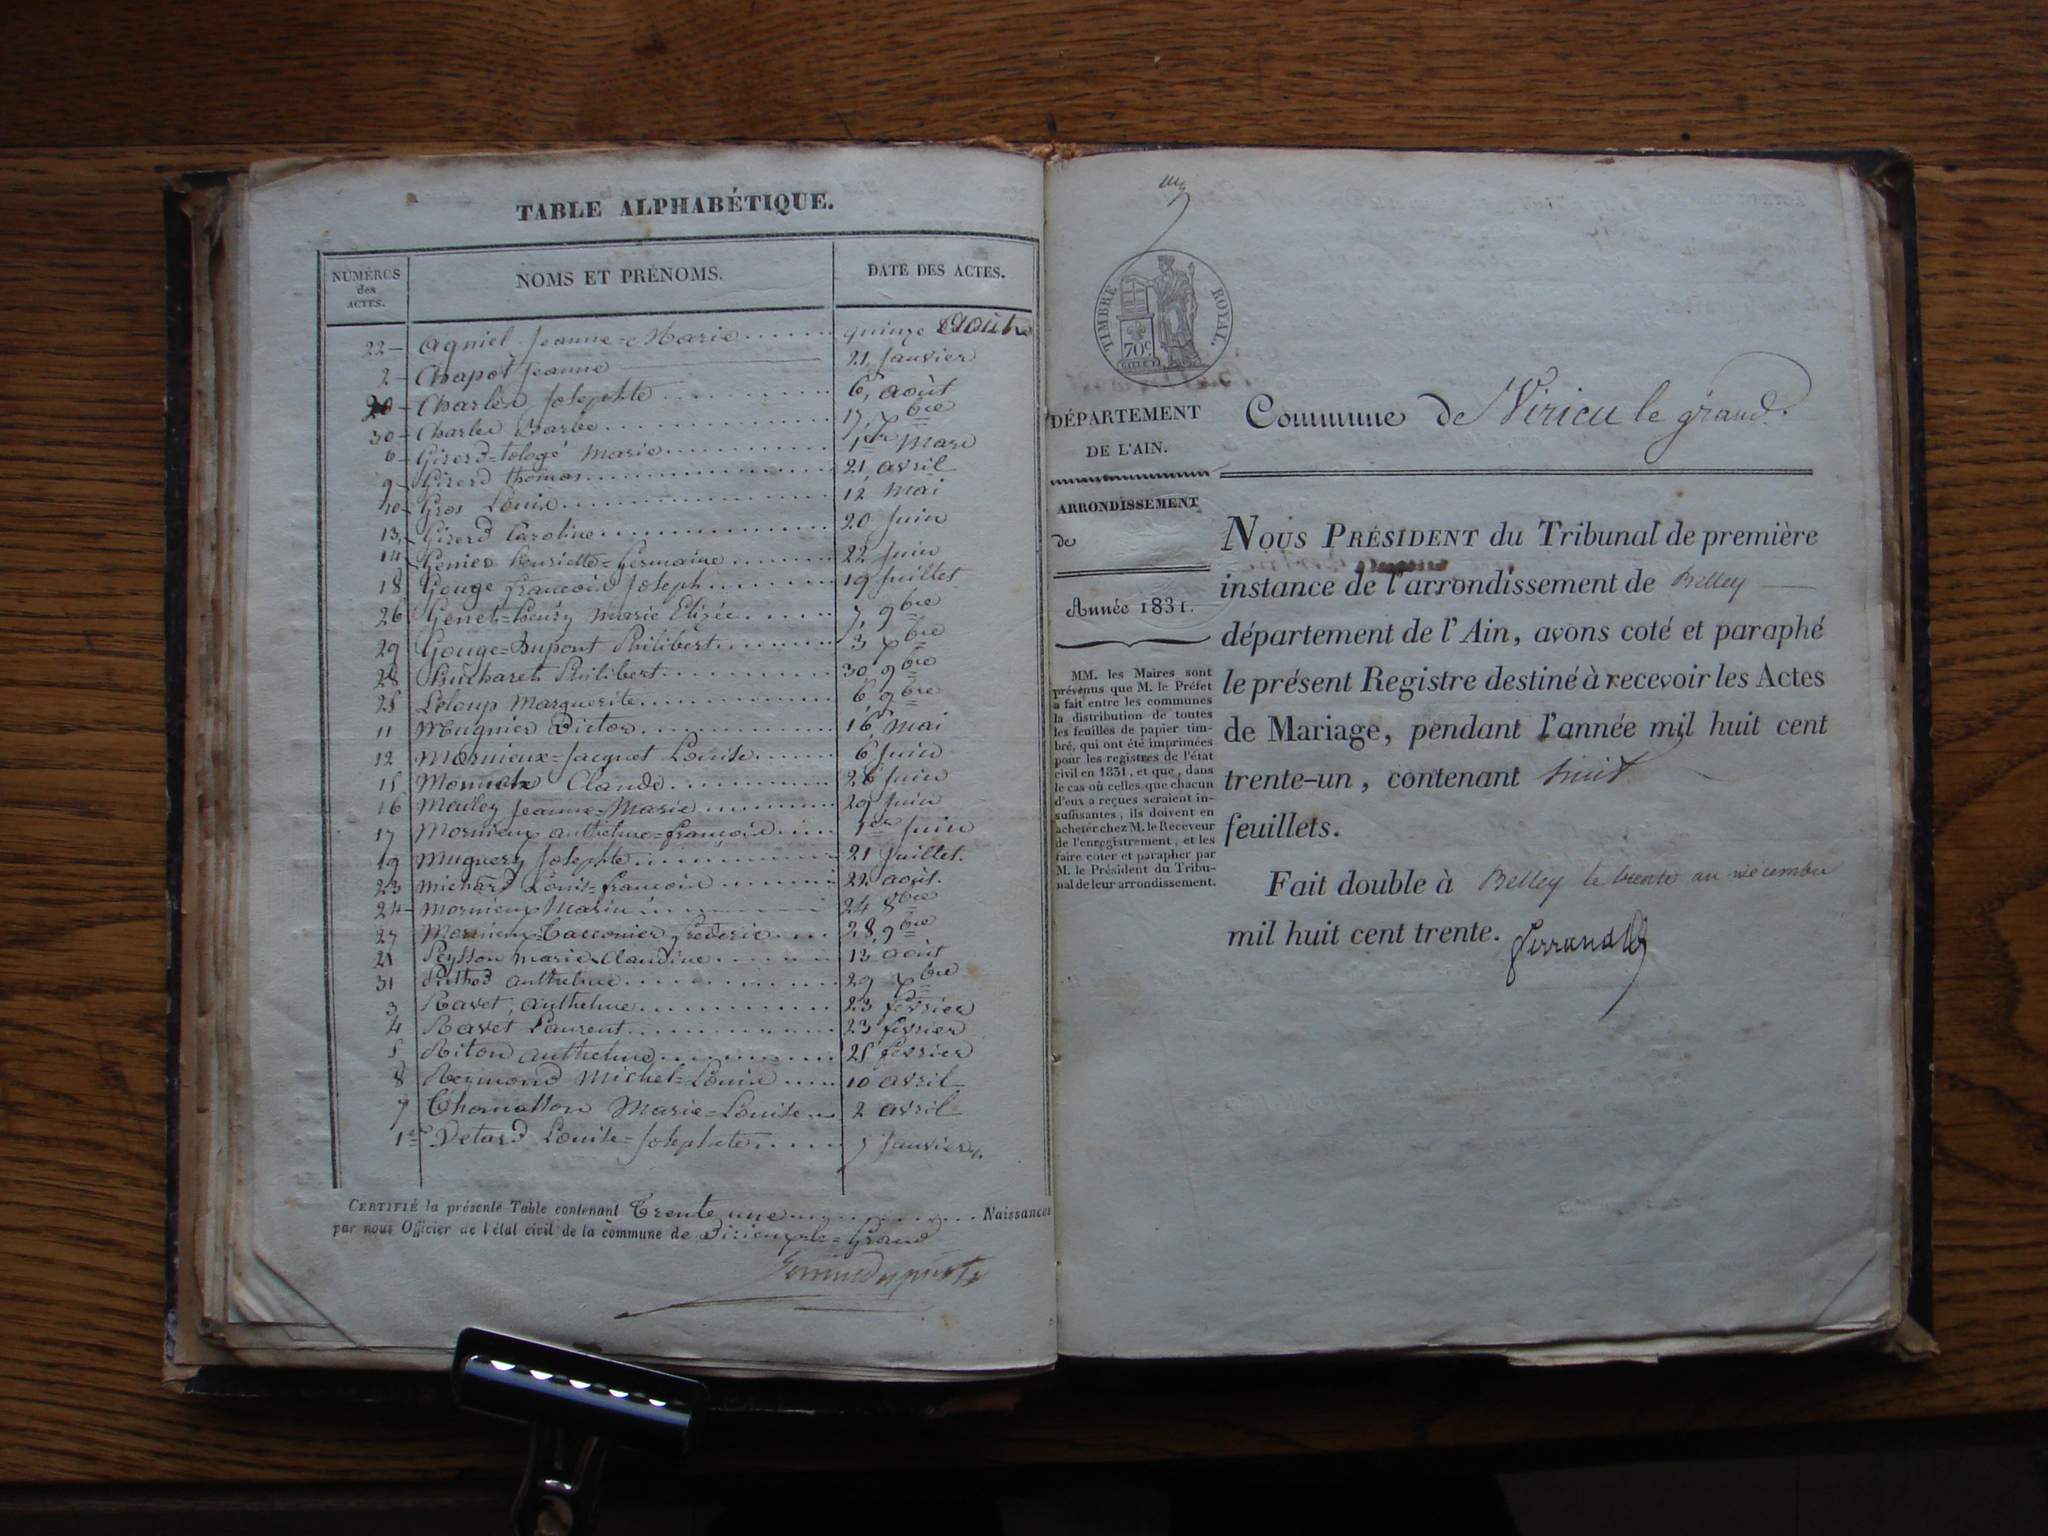 TABLE ALPHABÉTIQUE.
NUMÉROS des ACTES. NOMS ET PRÉNOMS. DATE DES ACTES.
22 Agniel Jeanne=Marie quinze Août
2 Chapot Jeanne 21 Janvier
20 Charles Josephte 6, août
30 Charles Barbe 17, Xbre
6 Girerd= Marie 1er Mars
9 Girerd thomas 21 avril
10 Gros Louis 12 Mai
13 Girerd Caroline 20 Juin
14 Genier henriette=Germaine 22 Juin
18 Gouge françois Joseph 19 Juillet
26 Genet=henry marie Elizée 7, 9bre
29 Gouge=Dupont Philibert 3 Xbre
28 Philibert 30 9bre
25 Leloup Marguerite 6 9bre
11 Mugnier Victor 16 Mai
12 Mornieux=Jacquet Louise 6 Juin
15 Claude 26 Juin
16 Jeanne=Marie 29 Juin
17 Mornieux anthelme=françois 1er Juin
19 Josephte 21 Juillet.
23 michard Louis=françois 22 août.
24 Mornieux Marin 24 8bre
27 Mornieux=Tacconier frederic 28, 9bre
21 Peysson marie Claudine 13 août
31 Puthod anthelme 29 Xbre
3 Ravet, anthelme 23 février
4 Ravet Laurent 23 février
5 Riton anthelme 25 février
8 Reymond Michel=Louis 10 avril
7 Thomasson Marie=Louise 2 avril
1er Vetard Louise=Josephte 7 Janvier
CERTIFIÉ la présente Table contenant Trente une Naissances
par nous Officier de l'état civil de la commune de Virieu-le=Grand
TIMBRE ROYAL.
70c
DÉPARTEMENT
DE L'AIN.
ARRONDISSEMENT
de
Année 1831.
MM. les Maires sont
prévenus que M. le Préfet
a fait entre les communes
la distribution de toutes
les feuilles de papier tim-
bré, qui ont été imprimées
pour les registres de l'état
civil en 1831, et que, dans
le cas où celles que chacun
d'eux a reçues seraient in-
suffisantes, ils doivent en
acheter chez M. le Receveur
de l'enregistrement, et les
faire coter et parapher par
M. le Président du Tribu-
nal de leur arrondissement.
Commune de Virieu le grand.
NOUS PRÉSIDENT du Tribunal de première
instance de l'arrondissement de Belley
département de l'Ain, avons coté et paraphé
le présent Registre destiné à recevoir les Actes
de Mariage, pendant l'année mil huit cent
trente-un, contenant huit
feuillets.
Fait double à Belley le trente un décembre
mil huit cent trente.